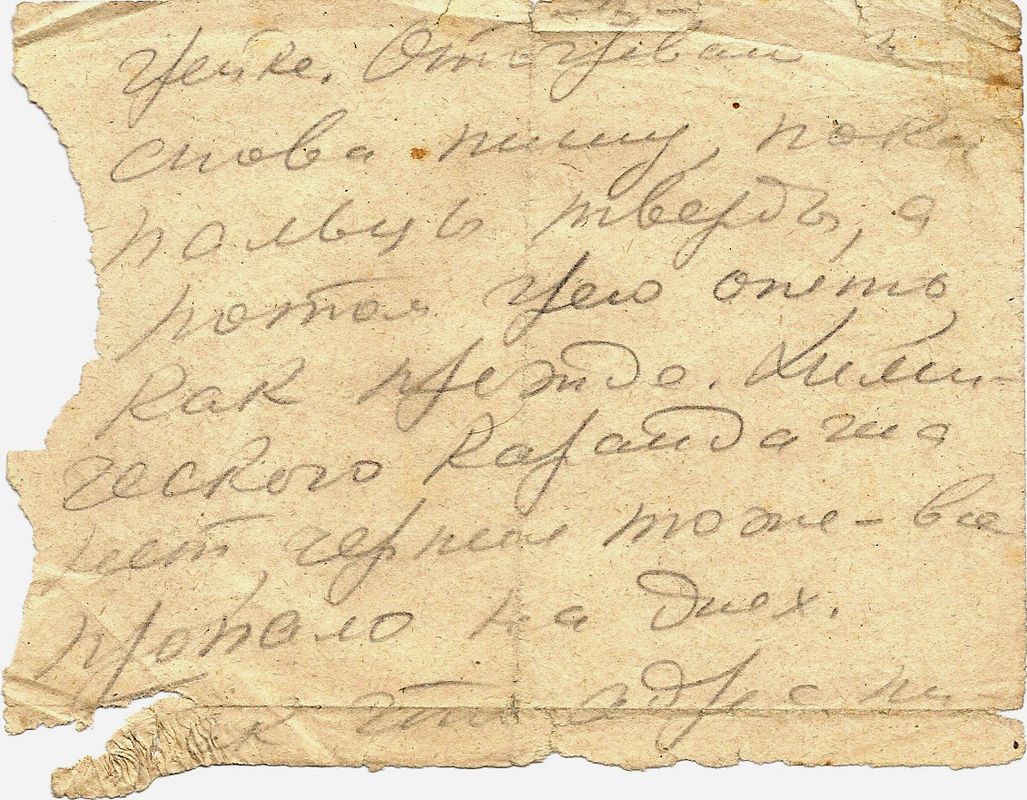 - 3 -
рейке. Отогреваю и
снова пишу, пока
пальцы тверды, а
потом грею опять
как прежде. Хими-
ческого карандаша
нет, чернил тоже - все
пропало на днях.
адрес